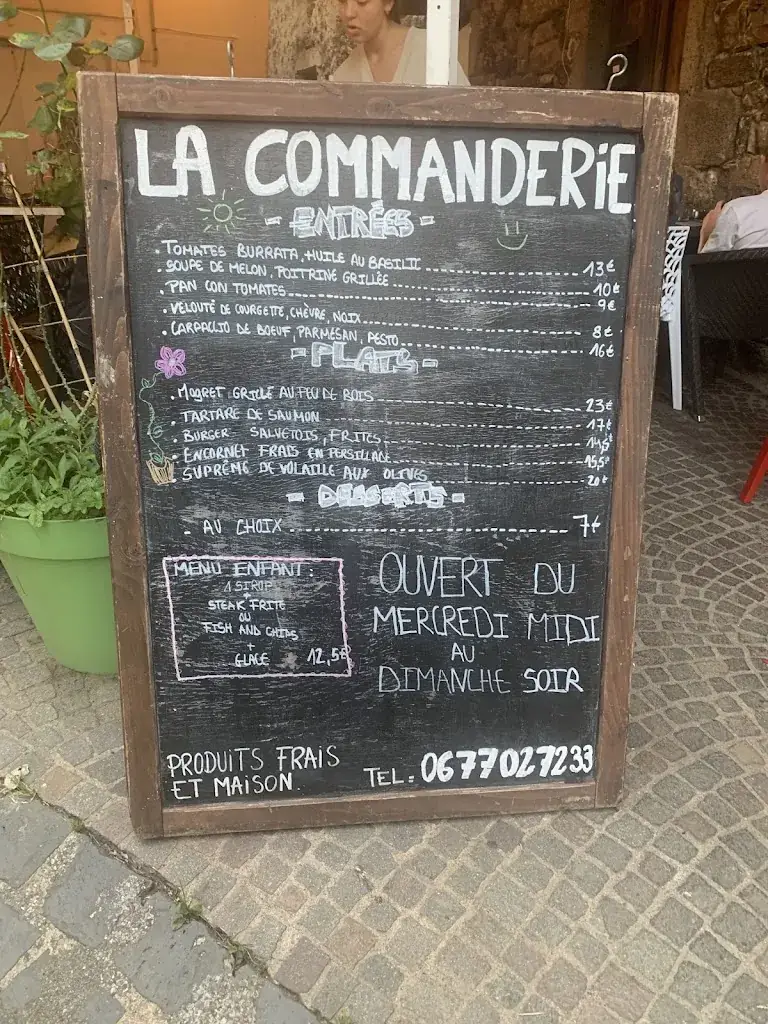 LA COMMANDERiE
- ENTRÉES -
. TOMATES BURRATA, HUILE AU BASILIC 13€
. SOUPE DE MELON, POITRINE GRILLÉE 10€
. PAN CON TOMATES 9€
. VELOUTÉ DE COURGETTE, CHÈVRE, NOIX 8€
. CARPACCIO DE BOEUF, PARMESAN, PESTO 16€
- PLATS -
. MAGRET GRILLÉ AU FEU DE BOIS 23€
. TARTARE DE SAUMON 17€
. BURGER SALVETOIS, FRITES 14,5€
. ENCORNET FRAIS EN PERSILLADE 15,5€
. SUPRÊME DE VOLAILLE AUX OLIVES 20€
- DESSERTS -
- AU CHOIX 7€
MENU ENFANT :
1 SIROP
+
STEAK FRITE
OU
FISH AND CHIPS
+
GLACE 12,5€
OUVERT DU
MERCREDI MIDI
AU
DIMANCHE SOIR
PRODUiTS FRAIS
ET MAiSON.
TEL : 0677027233